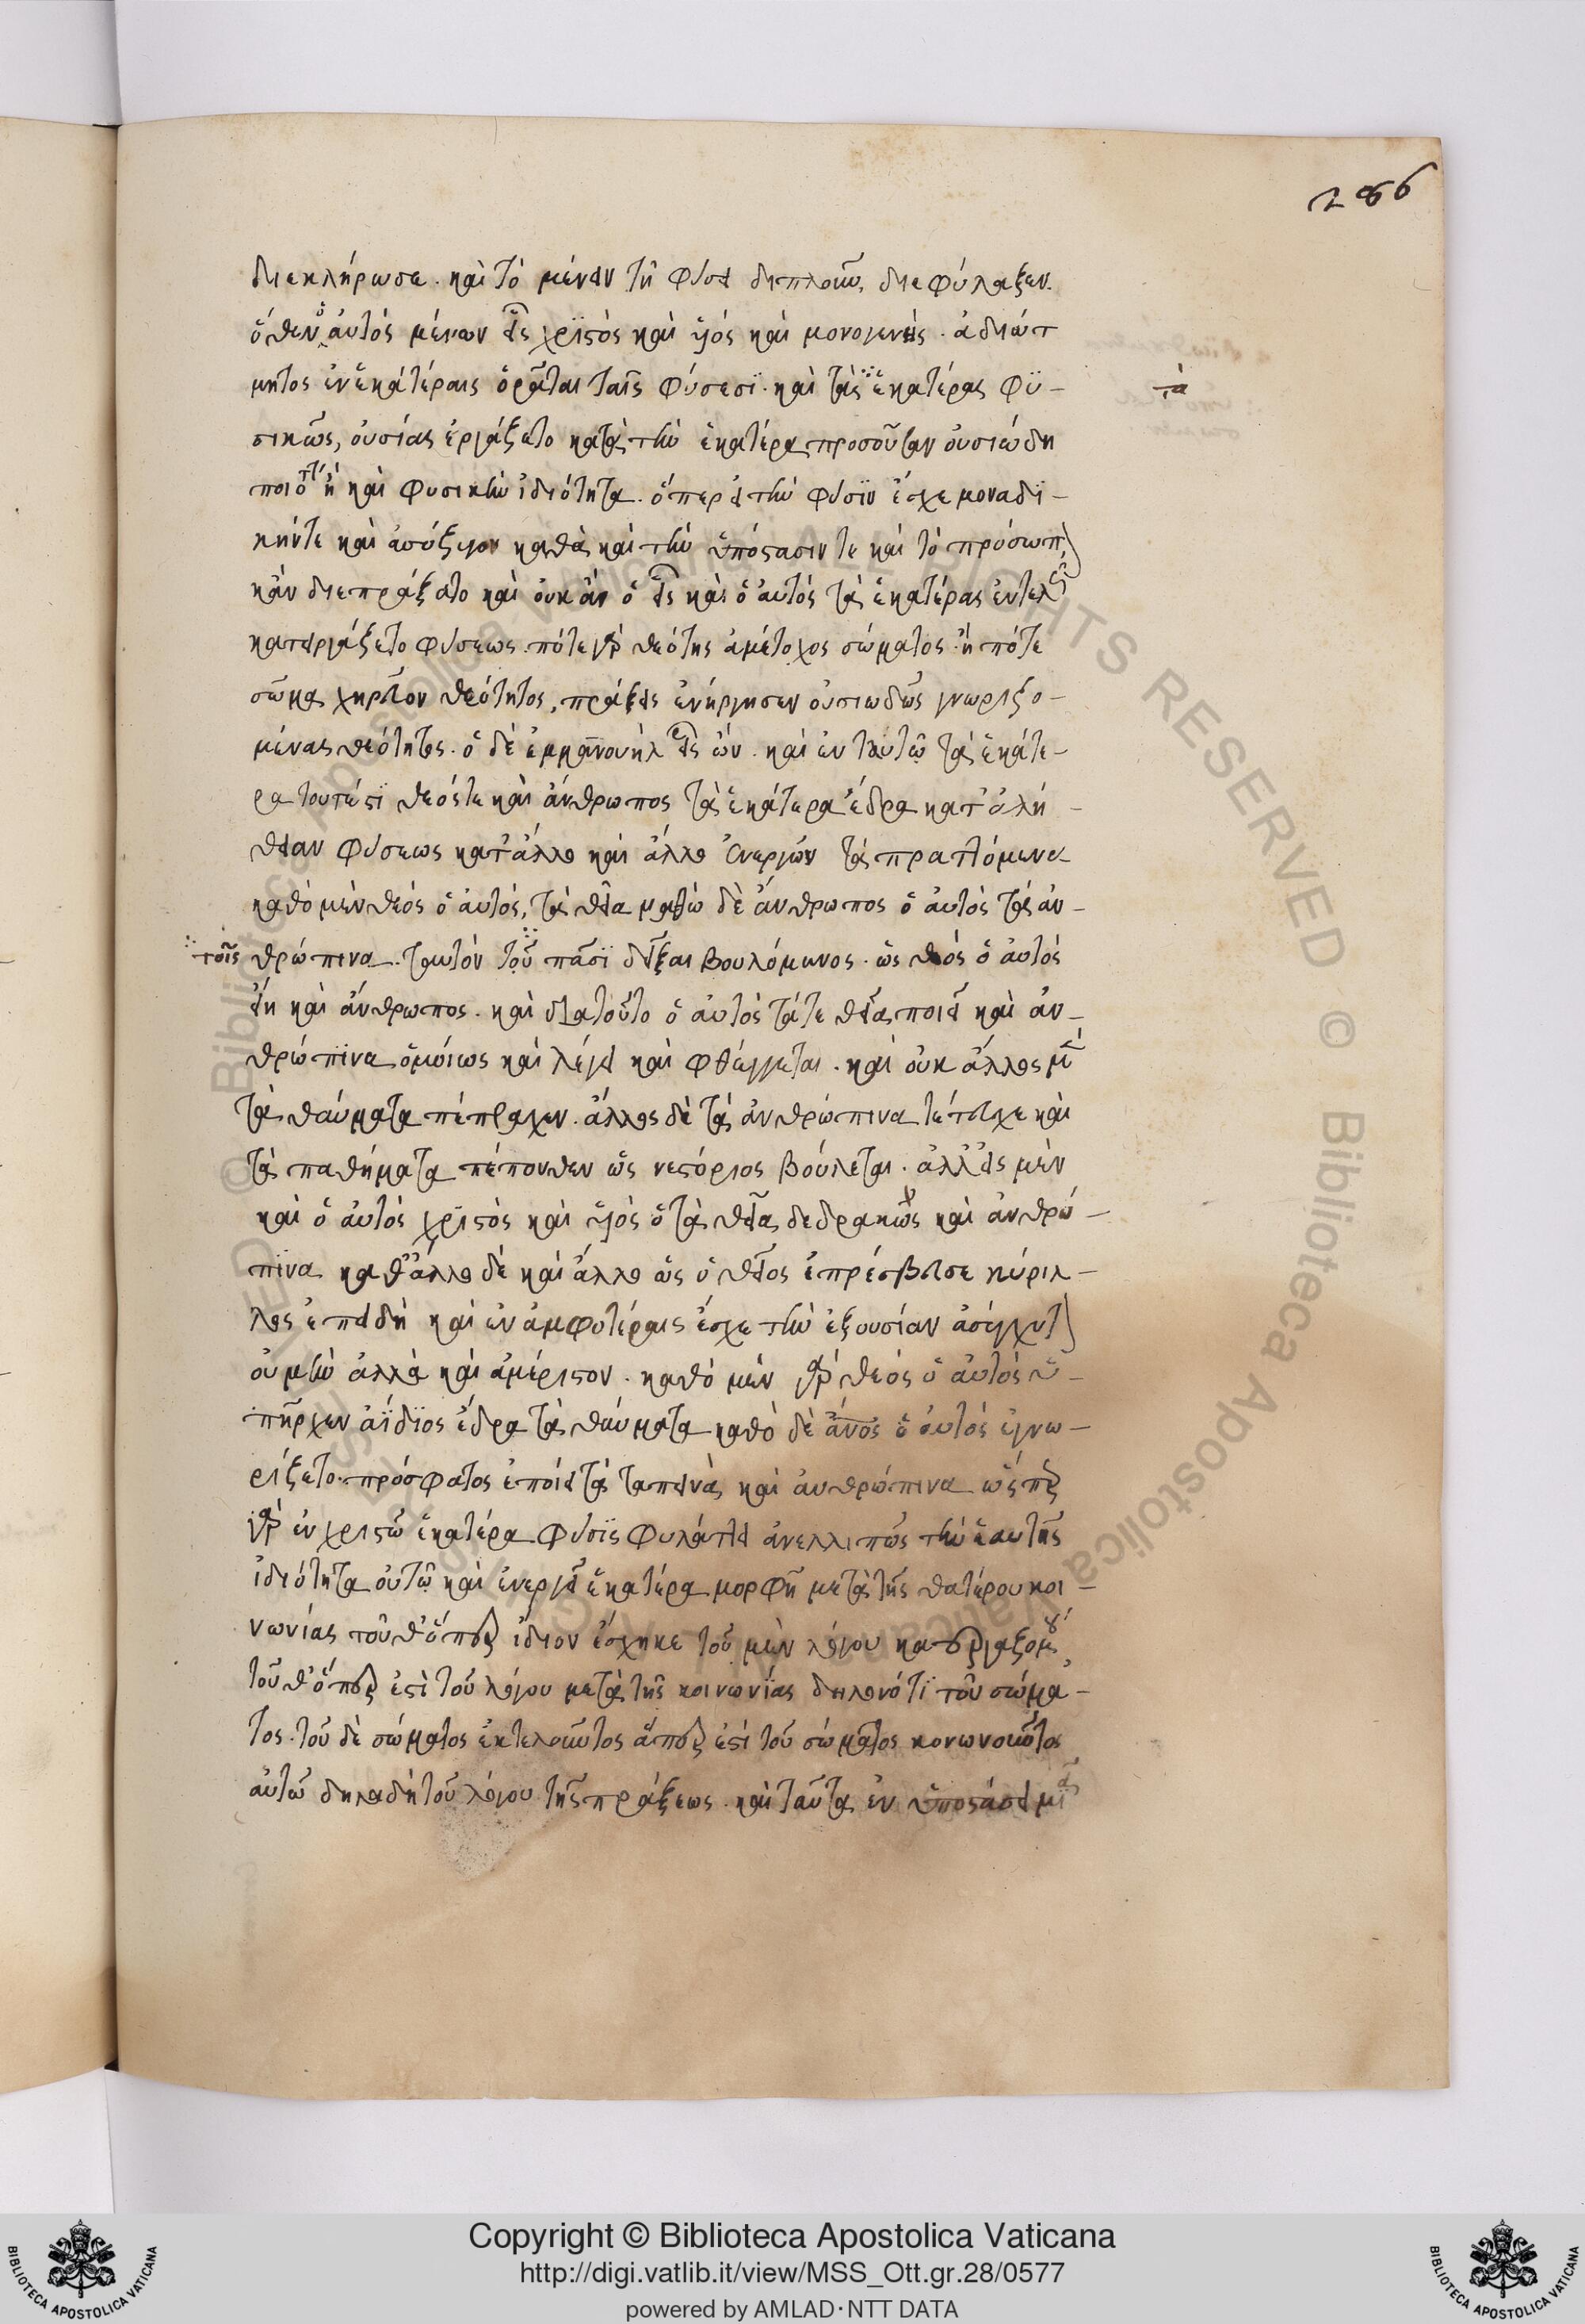 286
διεκλήρωσε. καὶ τὸ μένειν τῇ φύσει διπλοῦν, διεφύλαξεν.
ὅθεν ὁ αὐτὸς μένων εἷς χριστὸς καὶ υἱὸς καὶ μονογενὴς. ἀδιάτ
μητος ἐν ἑκατέραις ὁρᾶται ταῖς φύσεσϊ. καὶ τὰς ἑκατέρας φϋ-
τὰ
σικῶς, οὐσίας εἰργάζετο κατὰ τὴν ἑκατέρα προσοῦσαν οὐσιώδη
ποιότητ ἢ καὶ φυσικὴν ἰδιότητα. ὅπερ εἰ τὴν φύσϊν ἔσχε μοναδϊ-
κήντε καὶ ἀσύζυγον καθὰ καὶ τὴν ὑπόστασιν τε καὶ τὸ πρόσωπον
κἂν διεπράξατο καὶ οὐκ ἂν ὁ εἷς καὶ ὁ αὐτὸς τὰ ἑκατέρας ἐντελῶς
κατειργάζετο φύσεως. πότε γὰρ θεότης ἀμέτοχος σώματος. ἢ πότε
σῶμα χηρεῦον θεότητος, πράξεις ἐνήργησεν οὐσιωδῶς γνωριζο-
μένας θεότητος. ὁ δὲ ἐμμανουὴλ εἷς ὤν. καὶ ἐν ταυτῷ τὰ ἑκάτε-
ρα τουτέστϊ θεόστε καὶ ἄνθρωπος τὰ ἑκάτερα ἔδρα κατ' ἀλή-
θειαν φύσεως κατ' ἄλλο καὶ ἄλλο ἐνεργῶν τὰ πραττόμενα
καθὸ μὲν θεὸς ὁ αὐτὸς, τὰ θεῖα καθὼ δὲ ἄνθρωπος ὁ αὐτὸς τὰ ἀν-
τοῖς θρώπινα. ταυτὸν τοῦ πᾶσϊ δεῖξαι βουλόμενος. ὡς θεὸς ὁ αὐτὸς
εἴη καὶ ἄνθρωπος. καὶ διατοῦτο ὁ αὐτὸς τάτε θεῖα ποιεῖ καὶ ἀν-
θρώπϊνα ὁμοίως καὶ λέγει καὶ φθέγγεται. καὶ οὐκ ἄλλος μὲν
τὰ θαύματα πέπραχεν. ἄλλος δὲ τὰ ἀνθρώπινα τέτευχε καὶ
τὰ παθήματα πέπονθεν ὡς νεστόριος βούλεται. ἀλλ' εἷς μὲν
καὶ ὁ αὐτὸς χριστὸς καὶ υἱὸς ὁ τὰ θεῖα δεδρακὼς καὶ ἀνθρώ-
πϊνα κατ' ἄλλο δὲ καὶ ἄλλο ὡς ὁ θεῖος ἐπρέσβευσε κύριλ-
λος ἐπειδὴ καὶ ἐν ἀμφοτέραις ἔσχε τὴν ἐξουσίαν ἀσύγχυτον
οὐ μὴν ἀλλὰ καὶ ἀμέριστον. καθὸ μὲν γὰρ θεὸς ὁ αὐτὸς ὑ-
πῆρχεν ἀΐδϊος ἔδρα τὰ θαύματα καθὸ δὲ ἄνος ὁ αὐτὸς ἐγνω-
ρίζετο. πρόσφατος ἐποίει τὰ ταπεινὰ καὶ ἀνθρώπινα ὥσπερ
γὰρ ἐν χριστῷ ἑκατέρα φύσϊς φυλάττει ἀνελλιπῶς τὴν ἑαυτῆς
ἰδιότητα οὕτω καὶ ἐνεργεῖ ἑκατέρα μορφὴ μετὰ τῆς θατέρου κοι-
νωνίας τοῦθ' ὅπερ ἴδιον ἔσχηκε τοῦ μὲν λόγου κατεργαζομένου
τοῦθ' ὅπερ ἐστὶ τοῦ λόγου μετὰ τῆς κοινωνίας δηλονότϊ τοῦ σώμα-
τος. τοῦ δὲ σώματος ἐκτελοῦντος ἅπερ ἐστὶ τοῦ σώματος κονωνοῦντος
αὐτῷ δηλαδὴ τοῦ λόγου τῆς πράξεως. καὶ ταῦτα ἐν ὑποστάσει μιᾷ
Copyright © Biblioteca Apostolica Vaticana
http://digi.vatlib.it/view/MSS_Ott.gr.28/0577
powered by AMLAD·NTT DATA